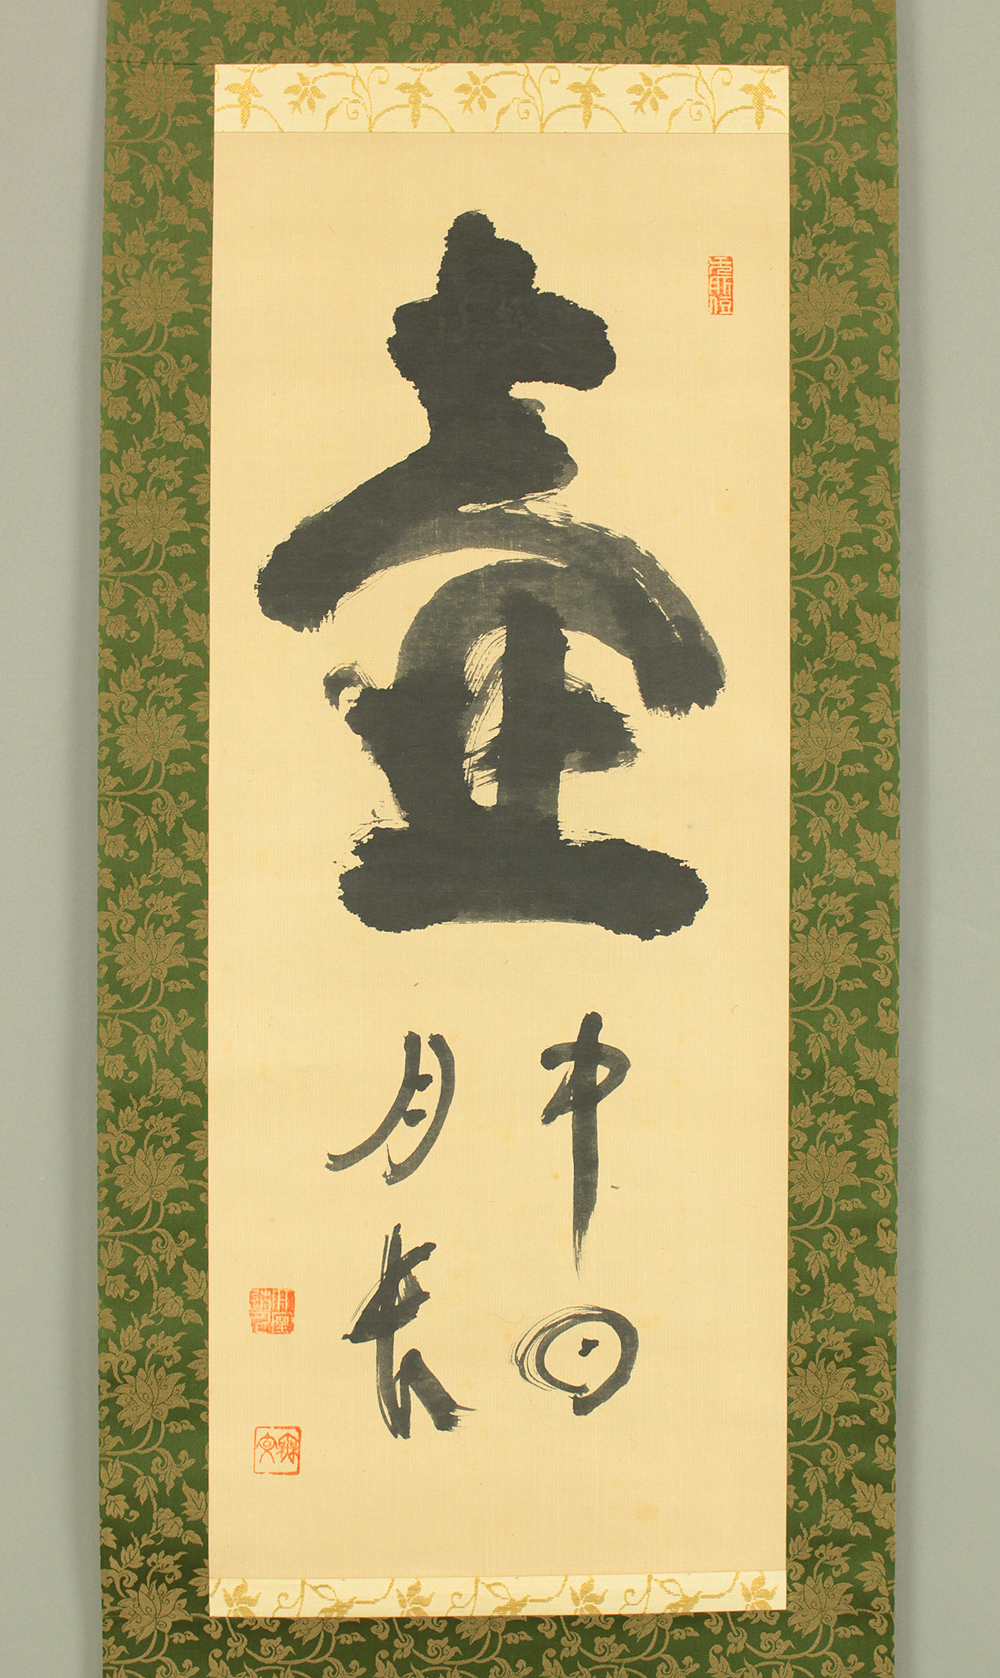 壺
中日
月長